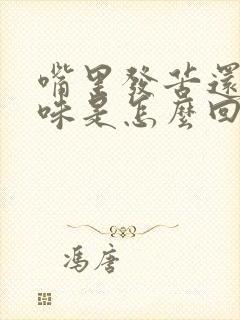 嘴里發苦還
味是怎麼回
馮唐